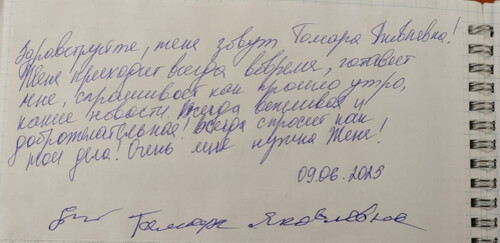 Здравствуйте, меня зовут Тамара Яковлевна!
Женя приходит всегда вовремя, готовит
мне, спрашивает как прошло утро,
какие новости, всегда вежливая и
доброжелательная! всегда спросит как
мои дела! Очень мне нужна Женя!
09.06.2023
Тамара Яковлевна